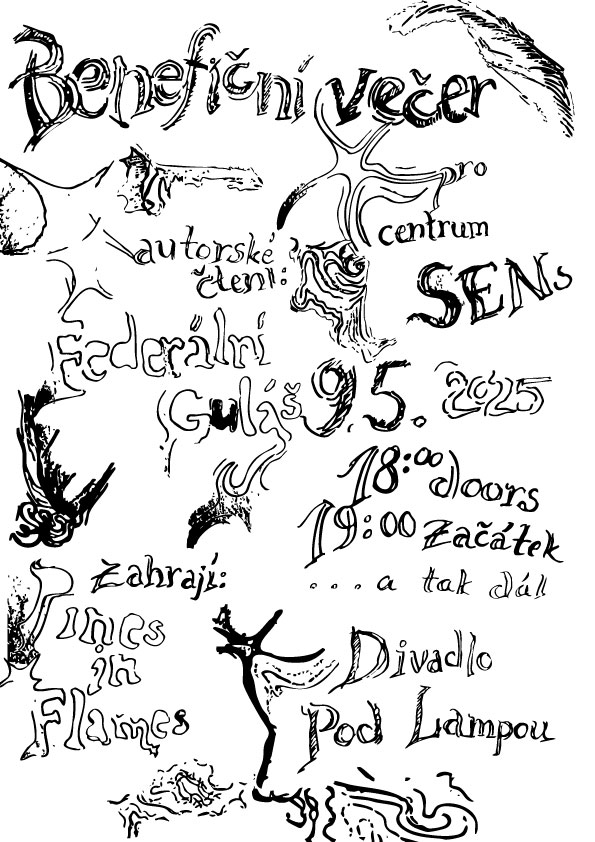 Benefiční večer
pro
centrum
SENS
autorské
čtení:
Federální
Guláš
9.5. 2025
18:00 doors
19:00 začátek
...a tak dál
Zahrají:
Pines
in
Flames
Divadlo
Pod Lampou